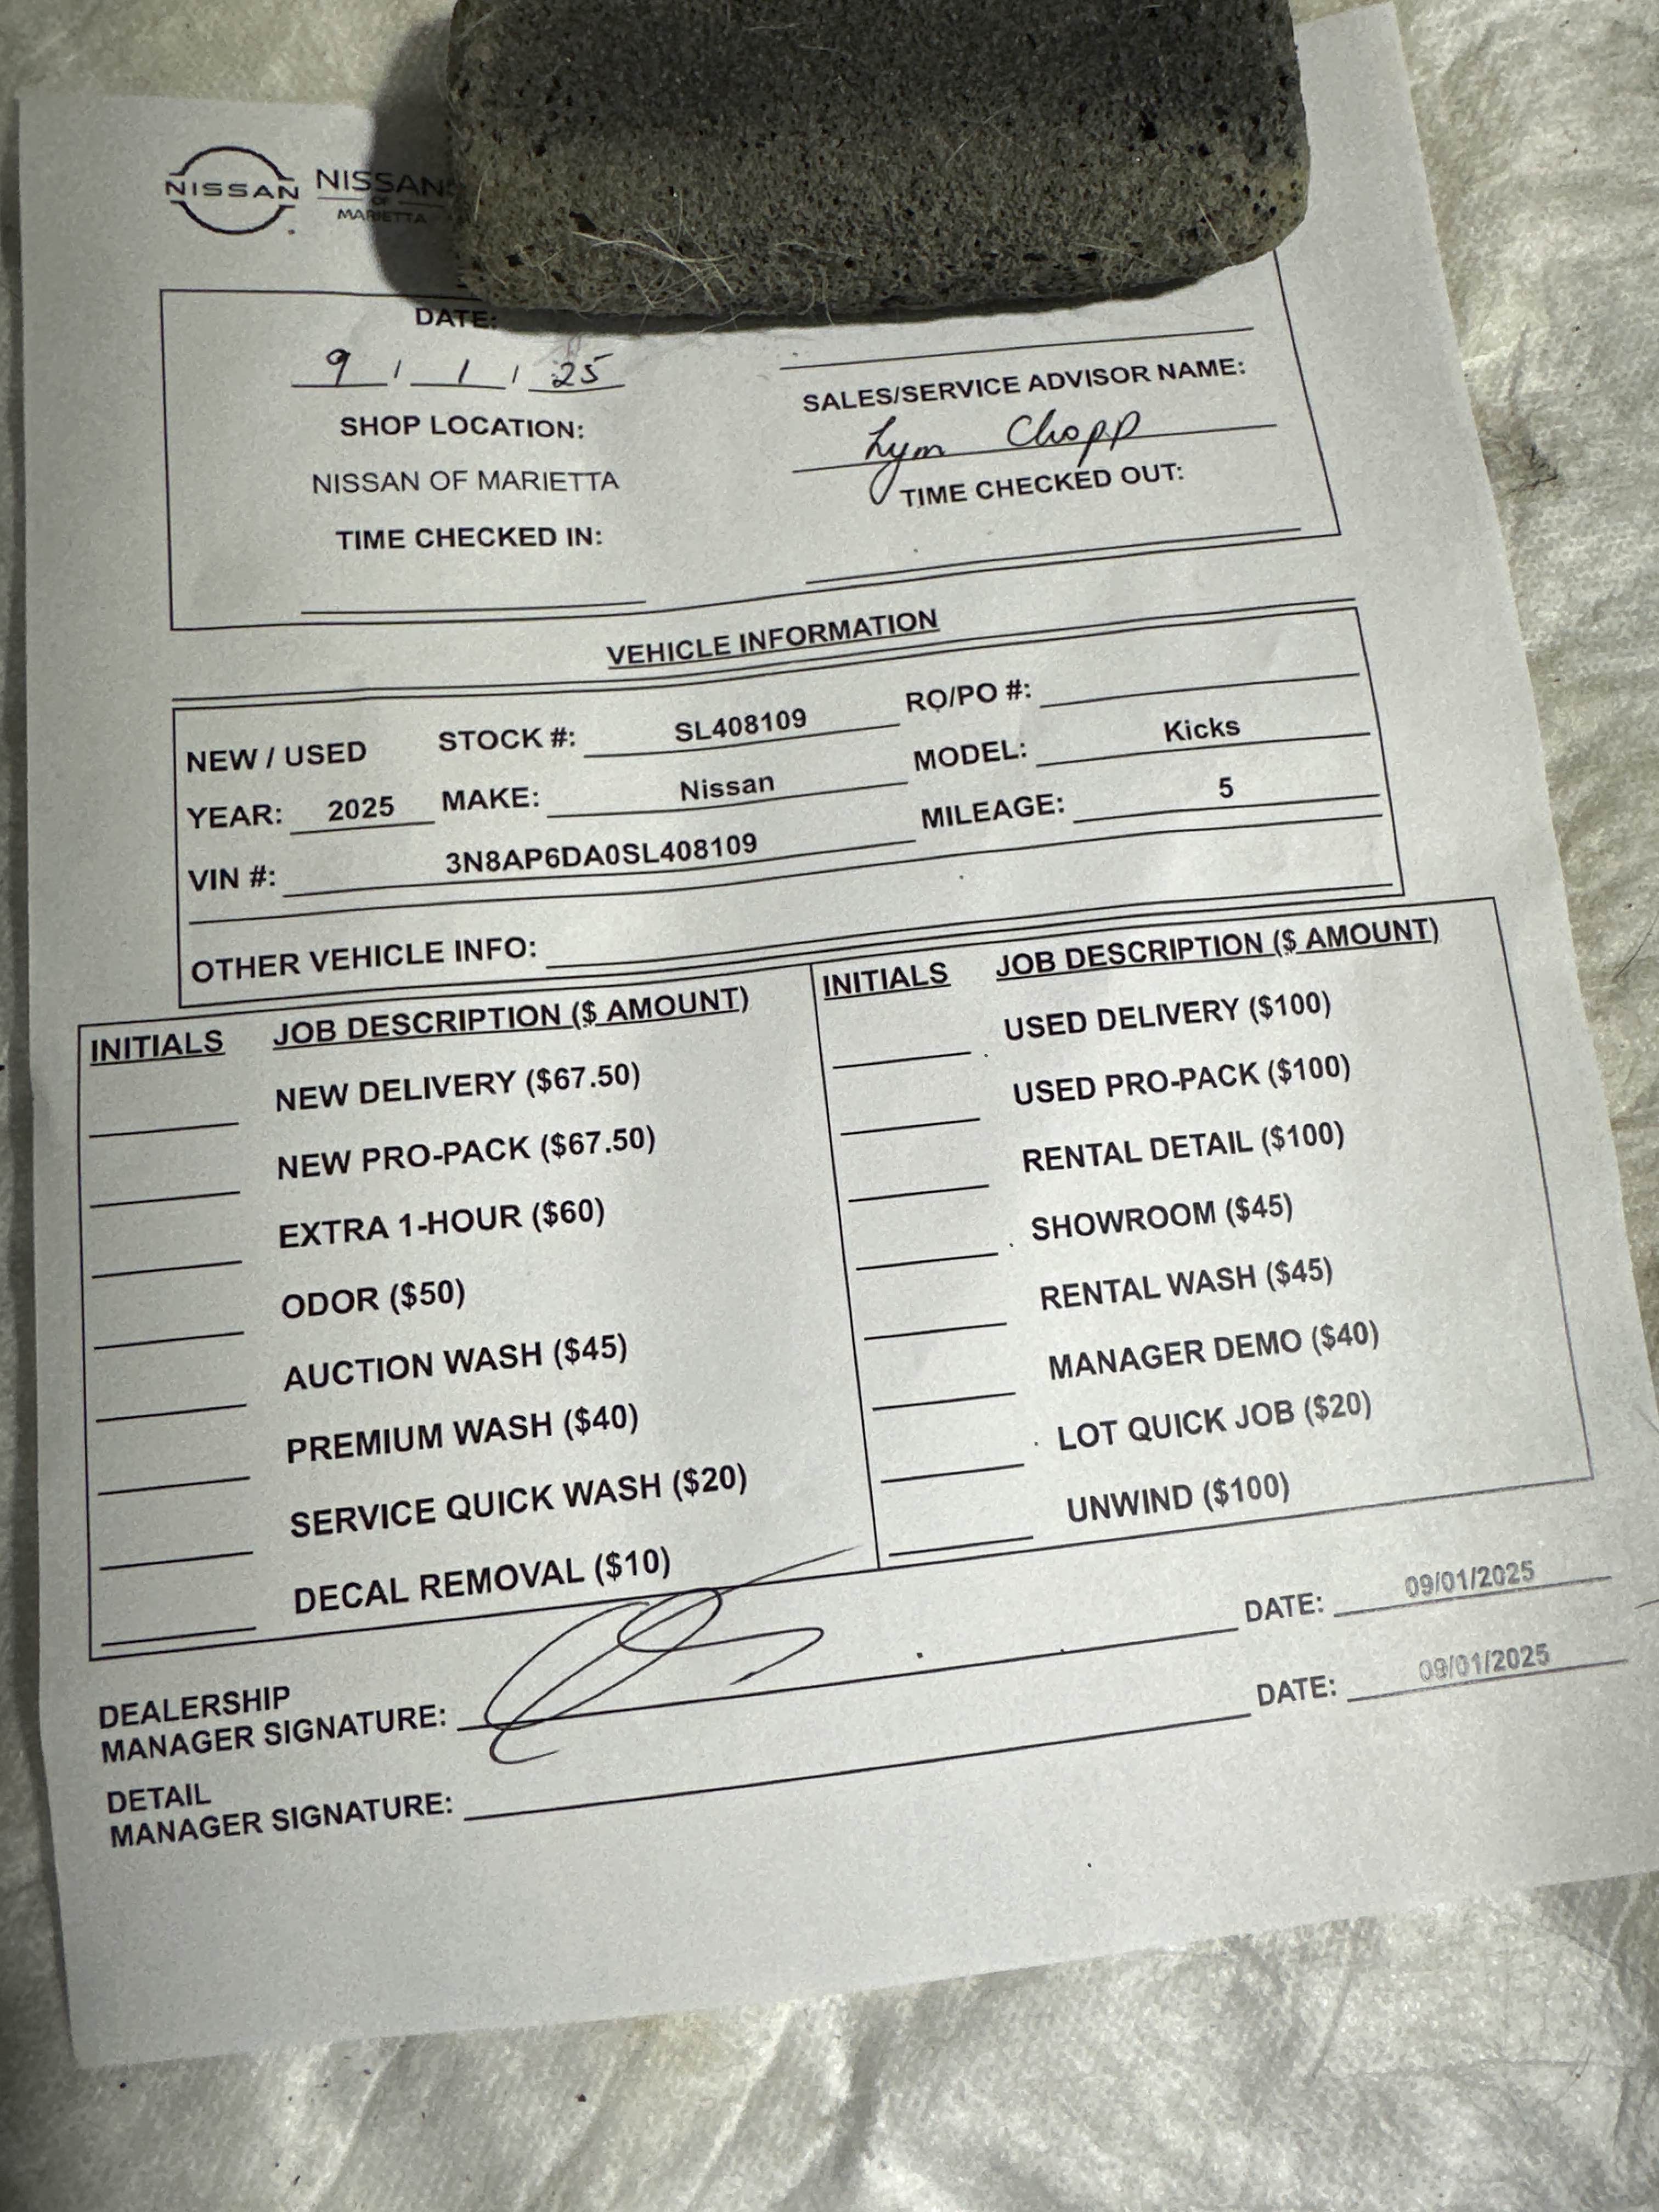 NISSAN NISSAN
OF
MARIETTA
DATE:
9 / 1 / 25
SHOP LOCATION:
NISSAN OF MARIETTA
TIME CHECKED IN:
SALES/SERVICE ADVISOR NAME:
Lym Chopp
TIME CHECKED OUT:
VEHICLE INFORMATION
NEW / USED STOCK #: SL408109 RO/PO #:
YEAR: 2025 MAKE: Nissan MODEL: Kicks
VIN #: 3N8AP6DA0SL408109 MILEAGE: 5
OTHER VEHICLE INFO:
INITIALS JOB DESCRIPTION ($ AMOUNT)
NEW DELIVERY ($67.50)
NEW PRO-PACK ($67.50)
EXTRA 1-HOUR ($60)
ODOR ($50)
AUCTION WASH ($45)
PREMIUM WASH ($40)
SERVICE QUICK WASH ($20)
DECAL REMOVAL ($10)
INITIALS JOB DESCRIPTION ($ AMOUNT)
USED DELIVERY ($100)
USED PRO-PACK ($100)
RENTAL DETAIL ($100)
SHOWROOM ($45)
RENTAL WASH ($45)
MANAGER DEMO ($40)
LOT QUICK JOB ($20)
UNWIND ($100)
DEALERSHIP
MANAGER SIGNATURE: DATE: 09/01/2025
DETAIL
MANAGER SIGNATURE: DATE: 09/01/2025